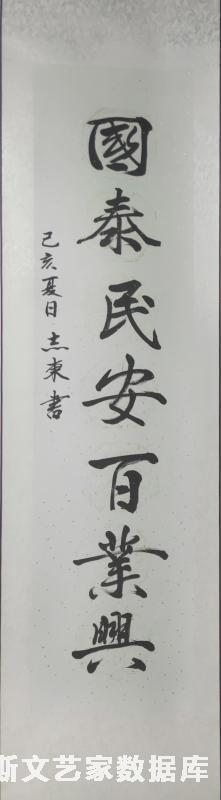 國泰民安百業興
己亥夏日 志東書
斯文艺家数据库